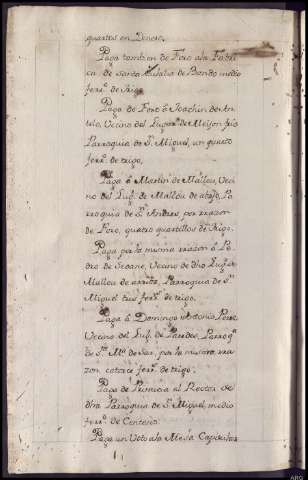 quartos en Dinero,
Paga tambien de Foro ala Fabri
ca de Santa Eulalia de Bando medio
ferr.o de trigo
Paga de Foro â Joachin de An
telo, Vecino del Lugar de Meijon frio
Parroquia de S.n Miguel, un quarto
ferr.o de trigo,
Paga â Martin de Mallou, Veci
no del Lug.r de Mallou de abajo, Pa
rroquia de S.n Andres, por rrazon
de Foro, quatro quartillos de trigo.
Paga por la misma rrazon â Pe
dro de Seoane, Vecino de dho Lug.r de
Mallou de arriba, Parroquia de S.n
Miguel tres ferr.s de trigo.
Paga â Domingo Antonio
Vecino del Lug.r de Paredes, Parroq.a
de S.ta M.a de Sar, por la misma rra
zon, catorce ferr.s de trigo.
Paga de Primicia al Rector de
dha Parroquia de S.n Miguel, medio
ferr.o de Centeno.
Paga un Voto ala Mesa Capitular